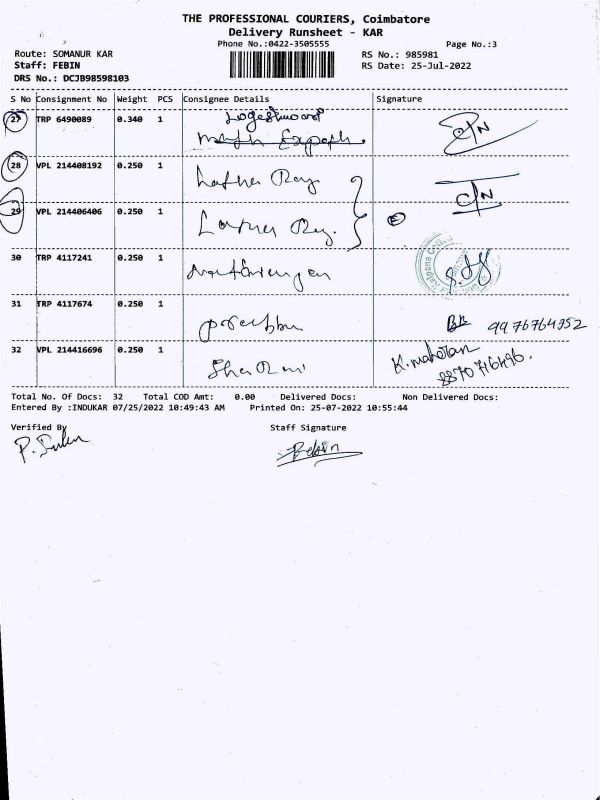 THE PROFESSIONAL COURIERS, Coimbatore
Delivery Runsheet - KAR
Phone No.:0422-3505555
Page No.:3
Route: SOMANUR KAR
RS No.: 985981
Staff: FEBIN
RS Date: 25-Jul-2022
DRS No.: DCJB98598103
S No Consignment No Weight PCS Consignee Details Signature
27 TRP 6490089 0.340 1
28 VPL 214408192 0.250 1
29 VPL 214406406 0.250 1
30 TRP 4117241 0.250 1
31 TRP 4117674 0.250 1
9976764952
32 VPL 214416696 0.250 1
Total No. Of Docs: 32 Total COD Amt: 0.00 Delivered Docs: Non Delivered Docs:
Entered By :INDUKAR 07/25/2022 10:49:43 AM Printed On: 25-07-2022 10:55:44
Verified By Staff Signature
Febin